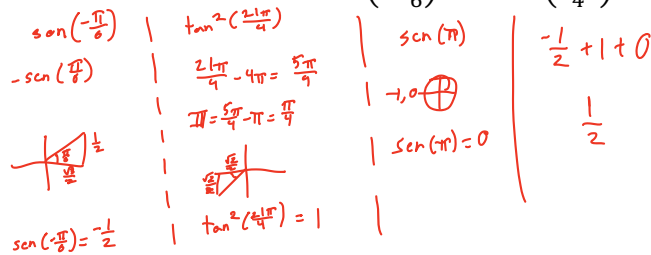 sen(-π/6)
-sen(π/6)
1/2
π/6
√3/2
sen(-π/6) = -1/2
tan²(21π/4)
21π/4 - 4π = 5π/9
III = 5π/4 - π = π/4
√2/2
√2/2
tan²(21π/4) = 1
6)
4)
sen(π)
-1,0
sen(π) = 0
-1/2 + 1 + 0
1/2